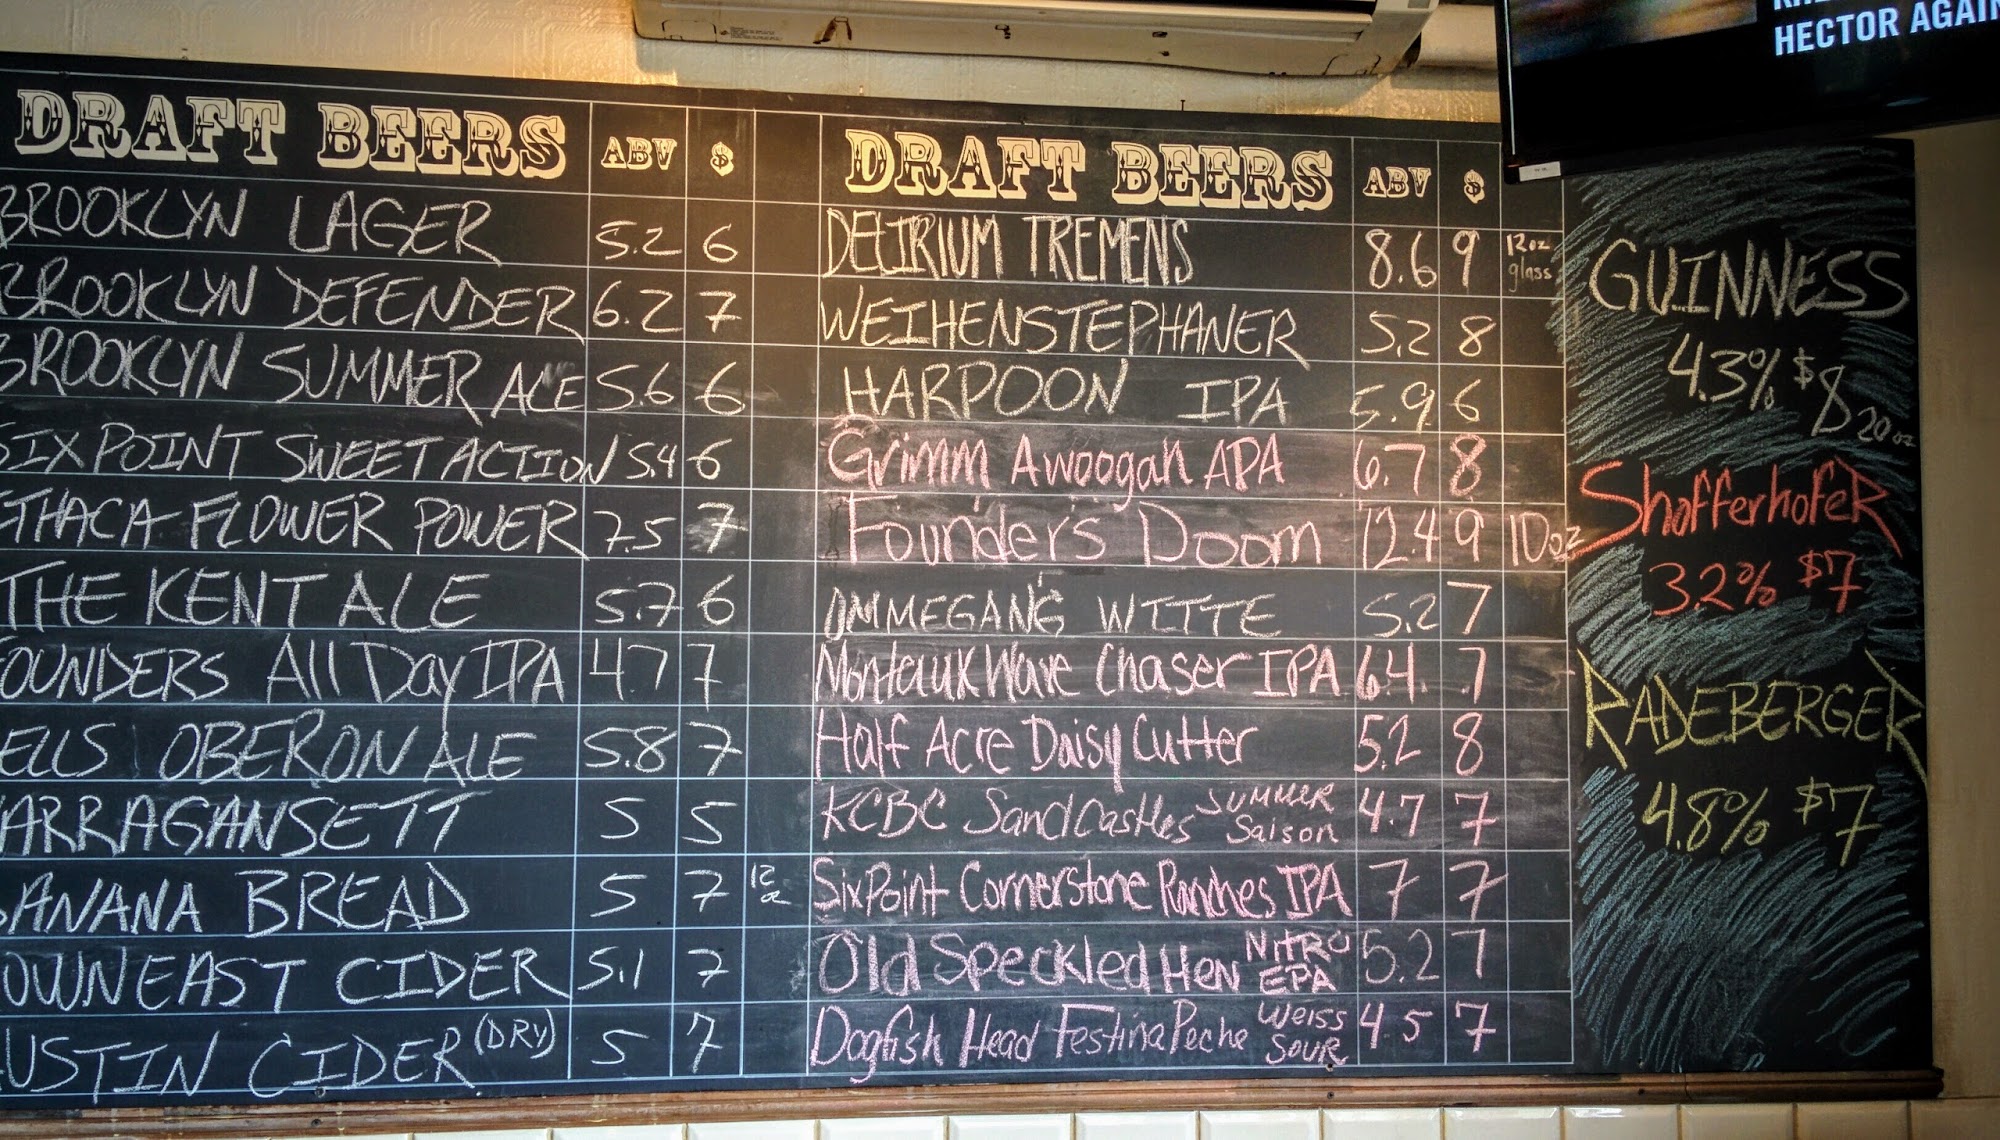 HECTOR AGAIN
DRAFT BEERS ABV $
BROOKLYN LAGER 5.2 6
BROOKLYN DEFENDER 6.2 7
BROOKLYN SUMMER ALE 5.6 6
SIXPOINT SWEET ACTION 5.4 6
ITHACA FLOWER POWER 7.5 7
THE KENT ALE 5.7 6
FOUNDERS All Day IPA 4.7 7
ELLS OBERON ALE 5.8 7
ARRAGANSETT 5 5
BANANA BREAD 5 7 12 oz
OWNEAST CIDER 5.1 7
USTIN CIDER (DRY) 5 7
DRAFT BEERS ABV $
DELIRIUM TREMENS 8.6 9 12oz glass
WEIHENSTEPHANER 5.2 8
HARPOON IPA 5.9 6
Grimm Awoogah APA 6.7 8
Founder's Doom 12.4 9 10oz
OMMEGANG WITTE 5.2 7
Montauk Wave Chaser IPA 6.4. 7
Half Acre Daisy Cutter 5.2 8
KCBC SandCastles SUMMER Saison 4.7 7
SixPoint Cornerstone Ranches IPA 7 7
Old Speckled Hen NITRO EPA 5.2 7
Dogfish Head Festina Peche Weiss SOUR 4.5 7
GUINNESS
4.3% $8 20 oz
ShofferhofeR
3.2% $7
RADEBERGER
4.8% $7